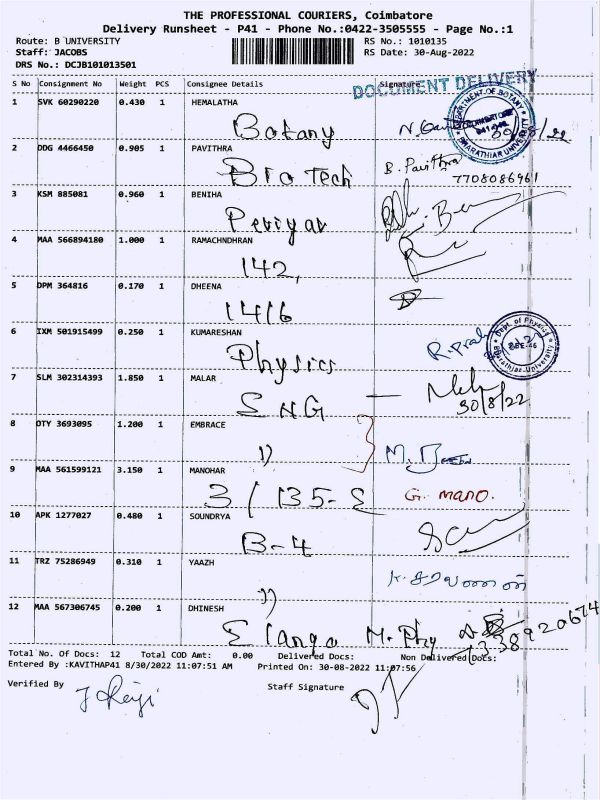 THE PROFESSIONAL COURIERS, Coimbatore
Delivery Runsheet - P41 - Phone No.:0422-3505555 - Page No.:1
Route: B UNIVERSITY
RS No.: 1010135
Staff: JACOBS
RS Date: 30-Aug-2022
DRS No.: DCJB101013501
S No Consignment No Weight PCS Consignee Details Signature
DOCUMENT DELIVERY
1 SVK 60290220 0.430 1 HEMALATHA
Botany
2 DDG 4466450 0.905 1 PAVITHRA
Bio Tech B. Pavithra
7708086961
3 KSM 885081 0.960 1 BENIHA
Periyar
4 MAA 566894180 1.000 1 RAMACHNDHRAN
142,
5 DPM 364816 0.170 1 DHEENA
1416
6 IXM 501915499 0.250 1 KUMARESHAN
Physics
Dept. of Physics
Bharathiar University
7 SLM 302314393 1.850 1 MALAR
ENG
30/8/22
8 OTY 3693095 1.200 1 EMBRACE
9 MAA 561599121 3.150 1 MANOHAR
3/135-E G. mano.
10 APK 1277027 0.480 1 SOUNDRYA
B-4
11 TRZ 75286949 0.310 1 YAAZH
12 MAA 567306745 0.200 1 DHINESH
Elango M. Phy
Total No. Of Docs: 12 Total COD Amt: 0.00 Delivered Docs: Non Delivered Docs:
Entered By :KAVITHAP41 8/30/2022 11:07:51 AM Printed On: 30-08-2022 11:07:56
Verified By
Staff Signature